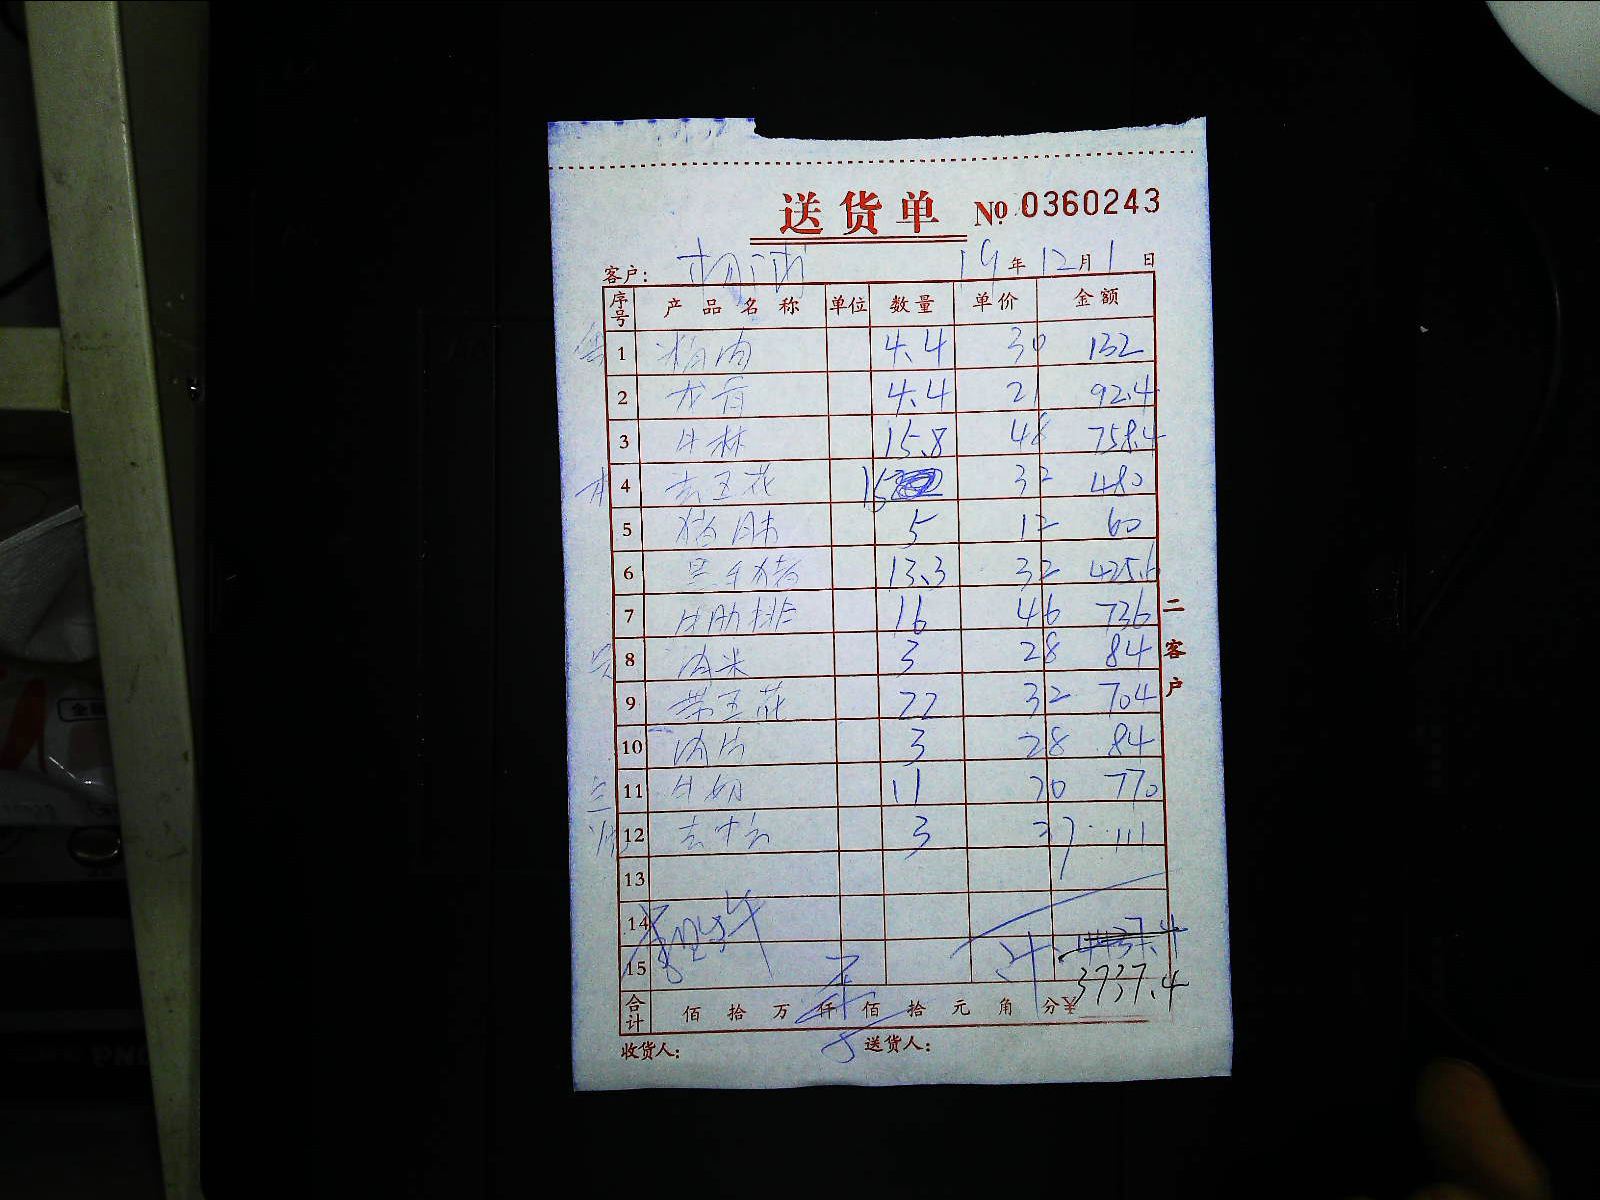 送货单 № 0360243
客户： 19年12月1日
序号 产品名称 单位 数量 单价 金额
1 精肉 4.4 30 132
2 龙骨 4.4 21 92.4
3 牛林 15.8 48 758.4
4 去五花 15 32 480
5 猪肺 5 12 60
6 黑千猪 13.3 32 425.6
7 牛肋排 16 46 736
8 肉米 3 28 84
9 带五花 22 32 704
10 肉片 3 28 84
11 牛奶 11 70 770
12 3 37 111
13
14
15 计 4437.4
3737.4
合计 佰 拾 万 仟 佰 拾 元 角 分¥
收货人： 送货人：
二客户